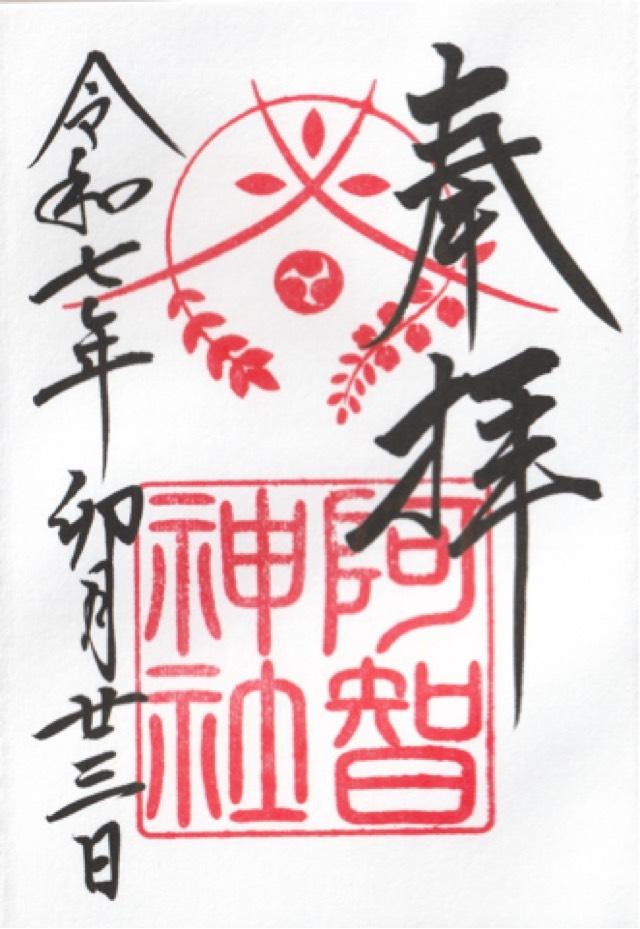 奉拝
阿智
神社
令和七年 卯月廿三日